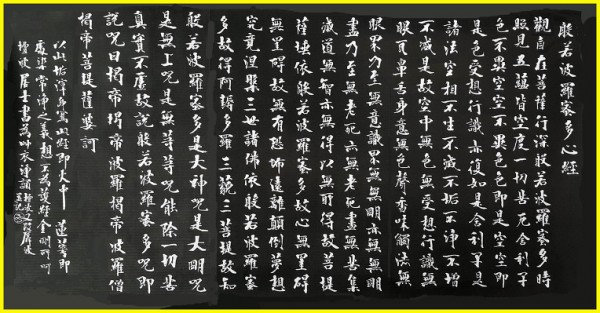 般若波羅蜜多心經
觀自在菩薩行深般若波羅蜜多時
照見五蘊皆空度一切苦厄舍利子
色不異空空不異色色即是空空即
是色受想行識亦復如是舍利子是
諸法空相不生不滅不垢不淨不增
不減是故空中無色無受想行識無
眼耳鼻舌身意無色聲香味觸法無
眼界乃至無意識界無無明亦無無明
盡乃至無老死亦無老死盡無苦集
滅道無智亦無得以無所得故菩提
薩埵依般若波羅蜜多故心無罣礙
無罣礙故無有恐怖遠離顛倒夢想
究竟涅槃三世諸佛依般若波羅蜜
多故得阿耨多羅三藐三菩提故知
般若波羅蜜多是大神咒是大明咒
是無上咒是無等等咒能除一切苦
真實不虛故說般若波羅蜜多咒即
說咒曰揭帝揭帝波羅揭帝波羅僧
揭帝菩提薩婆訶
以山垢淨身寫山經即火中蓮華即
塵染常淨之義想
居士書為